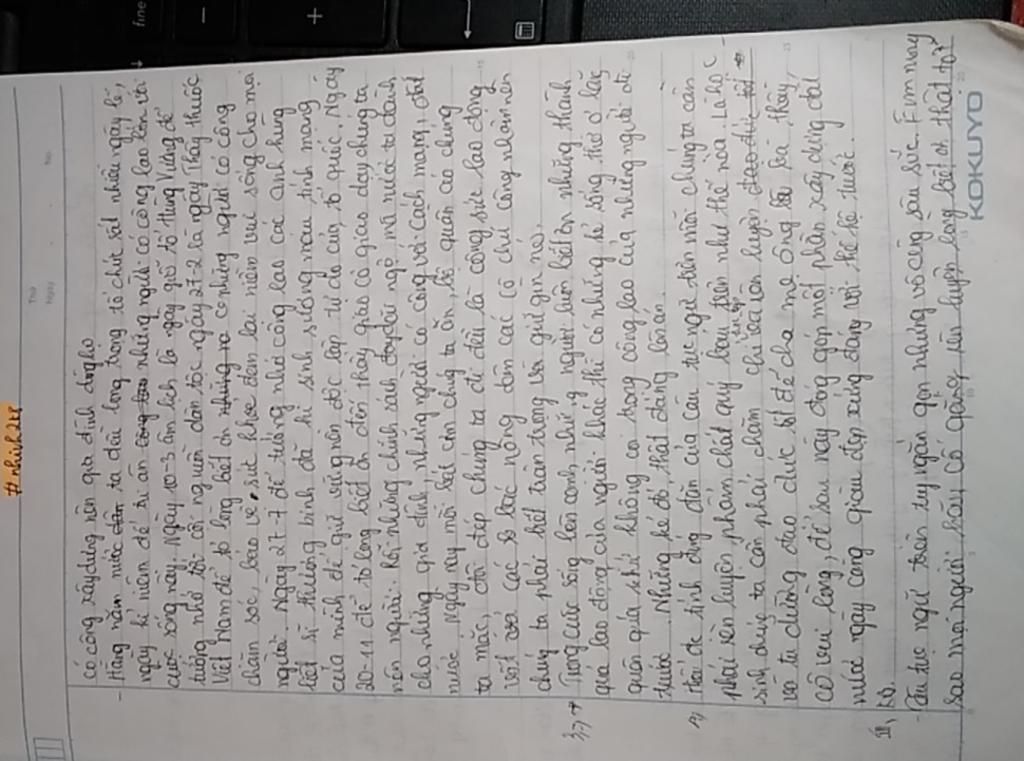 #nhinh2k8
Thứ
Ngày
No.
có công xây dựng nên gia đình dòng họ
- Hằng năm nước ta đều long trọng tổ chức rất nhiều ngày lễ,
ngày kỉ niệm để tri ân những người có công lao lớn với
cuộc sống này. Ngày 10-3 âm lịch là ngày giỗ tổ Hùng Vương để
tưởng nhớ tới cội nguồn dân tộc ngày 27-2 là ngày Thầy thuốc
Việt Nam để tỏ lòng biết ơn những người có công
chăm sóc, bảo vệ sức khoẻ đem lại niềm vui sống cho mọi
người. Ngày 27-7 để tưởng nhớ công lao các anh hùng
liệt sĩ thương binh đã hi sinh xương máu tính mạng
của mình để giữ vững nền độc lập tự do của tổ quốc. Ngày
20-11 để tỏ lòng biết ơn đến thầy giáo cô giáo dạy chúng ta
nên người. Rồi những chính sách đãi ngộ mà nước ta dành
cho những gia đình, những người có công với cách mạng, đất
nước. Ngày nay mỗi bát cơm chúng ta ăn, bộ quần áo chúng
ta mặc, đôi dép chúng ta đi đều là công sức lao động
vất vả các bác nông dân các cô chú công nhân nên
chúng ta phải biết trân trọng và giữ gìn nó.
Trong cuộc sống bên cạnh những người luôn biết ơn những thành
quả lao động của người khác thì có những kẻ sống thờ ơ lãng
quên quá khứ không coi trọng công lao của những người đi
trước. Những kẻ đó thật đáng lên án.
Thấy được tính đúng đắn của câu tục ngữ trên mỗi chúng ta cần
phải rèn luyện phẩm chất quý báu trên như thế nào. Là học
sinh chúng ta cần phải chăm chỉ học tập rèn luyện
và tu dưỡng đạo đức tốt để cha mẹ ông bà, thầy
cô vui lòng, để sau này đóng góp một phần xây dựng đất
nước ngày càng giàu đẹp xứng đáng với thế hệ trước.
III, KB.
- Câu tục ngữ trên tuy ngắn gọn nhưng vô cùng sâu sắc. Em mong
sao mọi người hãy cố gắng rèn luyện lòng biết ơn thật tốt
KOKUYO